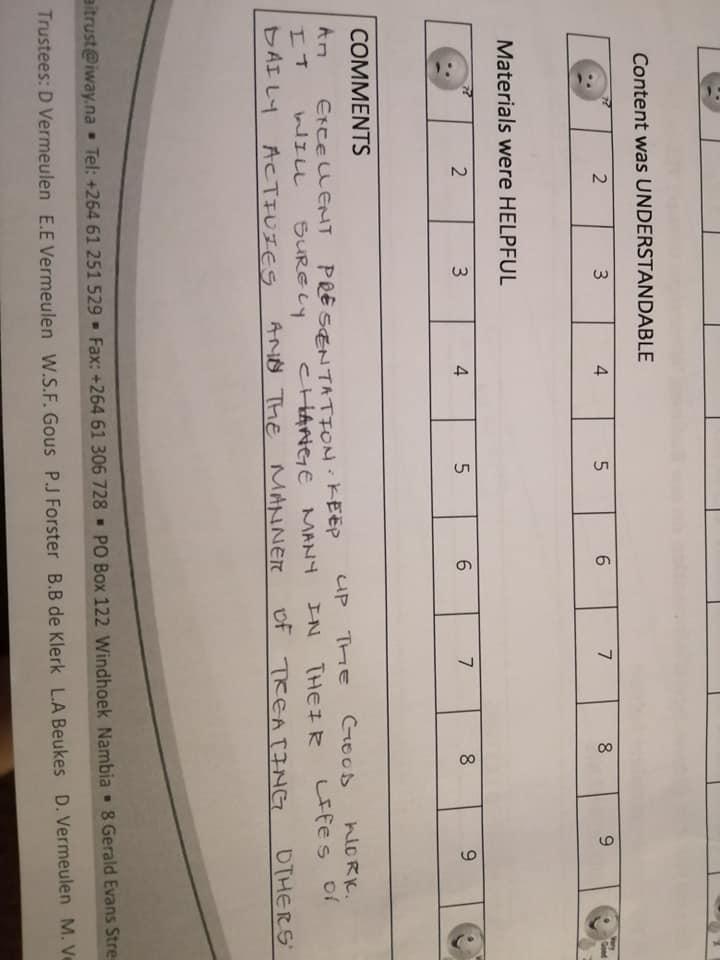 Content was UNDERSTANDABLE
2 3 4 5 6 7 8 9 Very Good
Materials were HELPFUL
2 3 4 5 6 7 8 9
COMMENTS
An EXCELLENT PRESENTATION. KEEP UP THE GOOD WORK.
IT WILL SURELY CHANGE MANY IN THEIR LIFES OF
DAILY ACTIVIES AND THE MANNER OF TREATING OTHERS
aitrust@iway.na ▪ Tel: +264 61 251 529 ▪ Fax: +264 61 306 728 ▪ PO Box 122 Windhoek Nambia ▪ 8 Gerald Evans Stre
Trustees: D Vermeulen E.E Vermeulen W.S.F. Gous P.J Forster B.B de Klerk L.A Beukes D. Vermeulen M. V